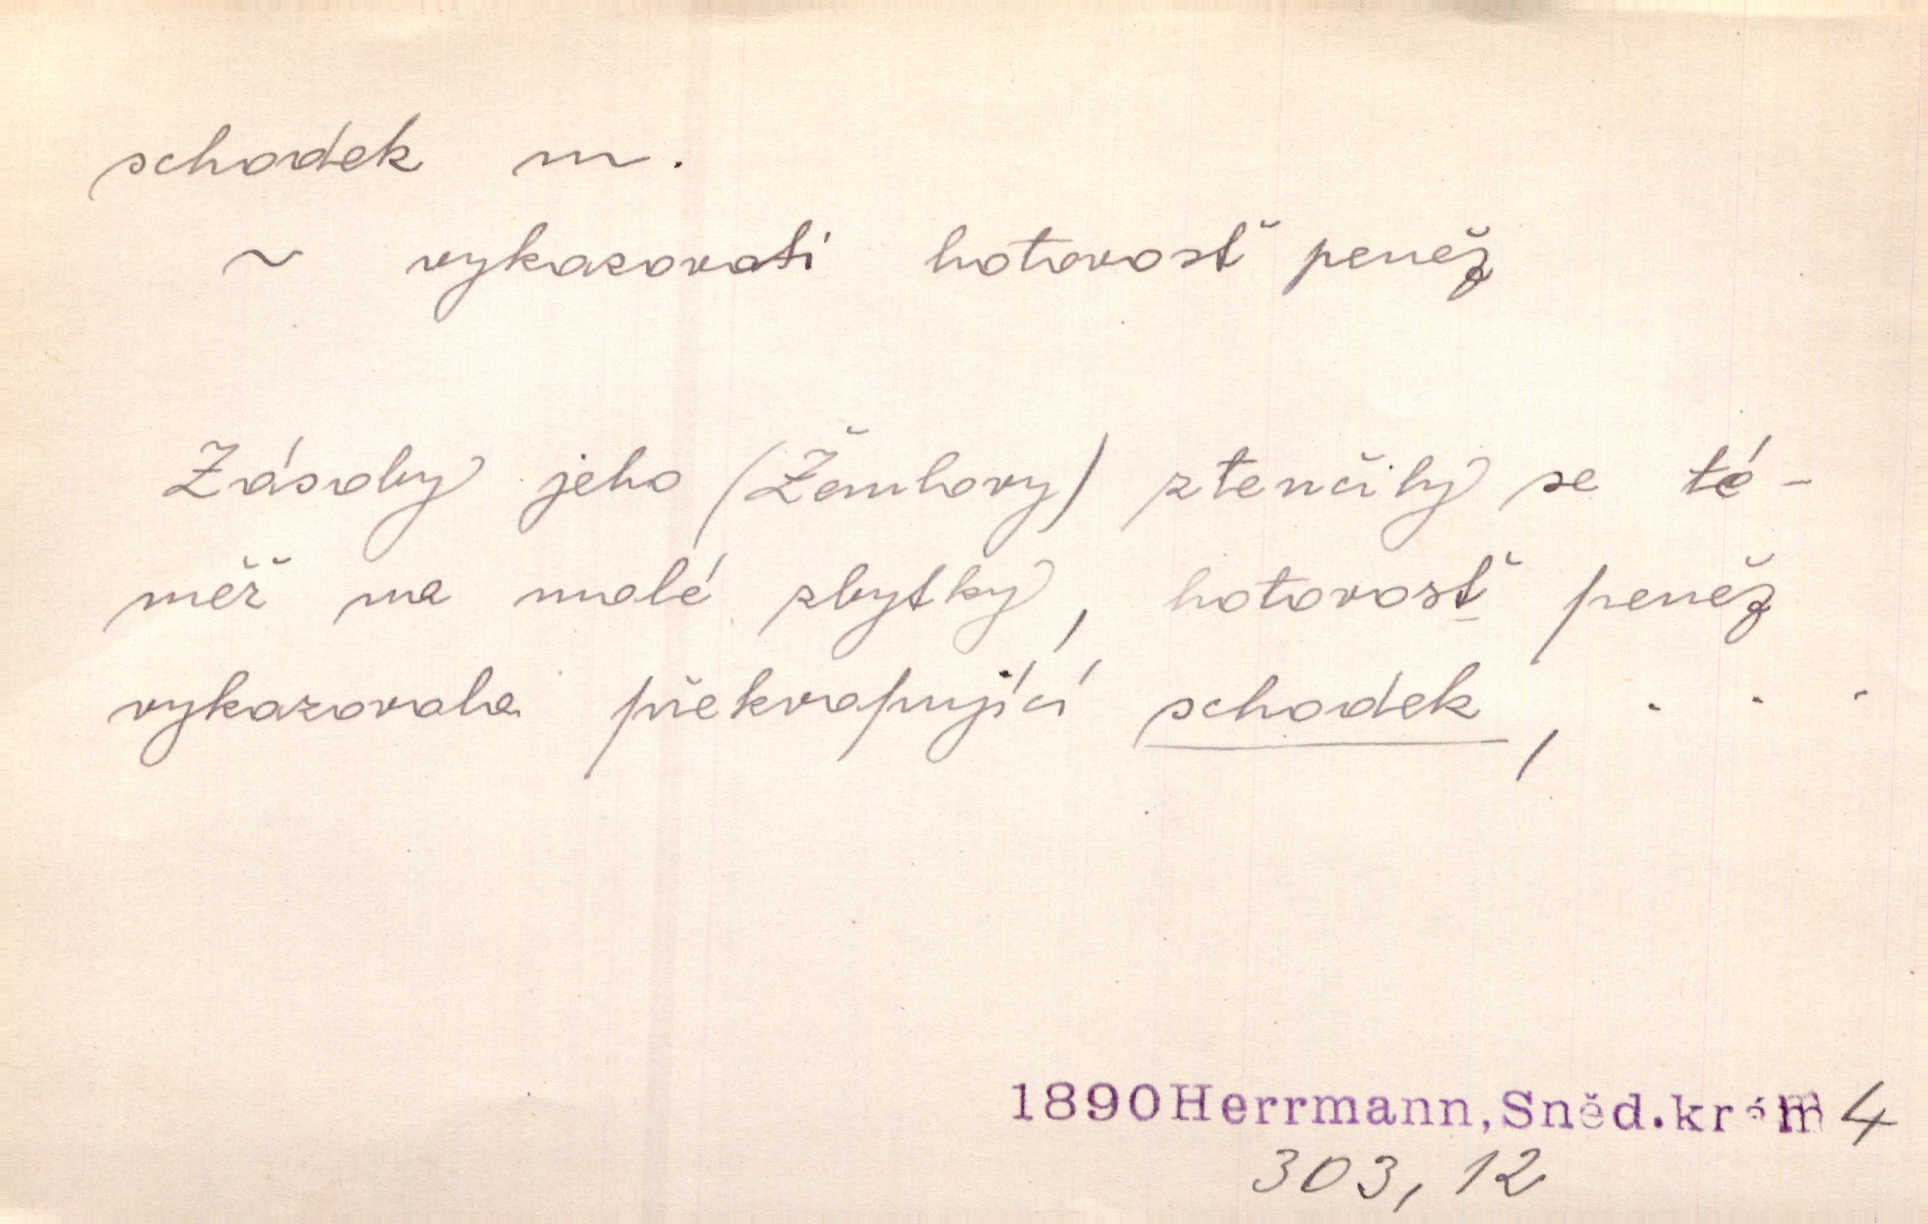 schodek m.
~ vykazovati hotovosť peněz
Zásoby jeho (Žemlovy) ztenčily se té-
měř na malé zbytky, hotovosť peněz
vykazovala překvapující schodek, . . .
1890 Herrmann, Sněd. krám 4
303, 12